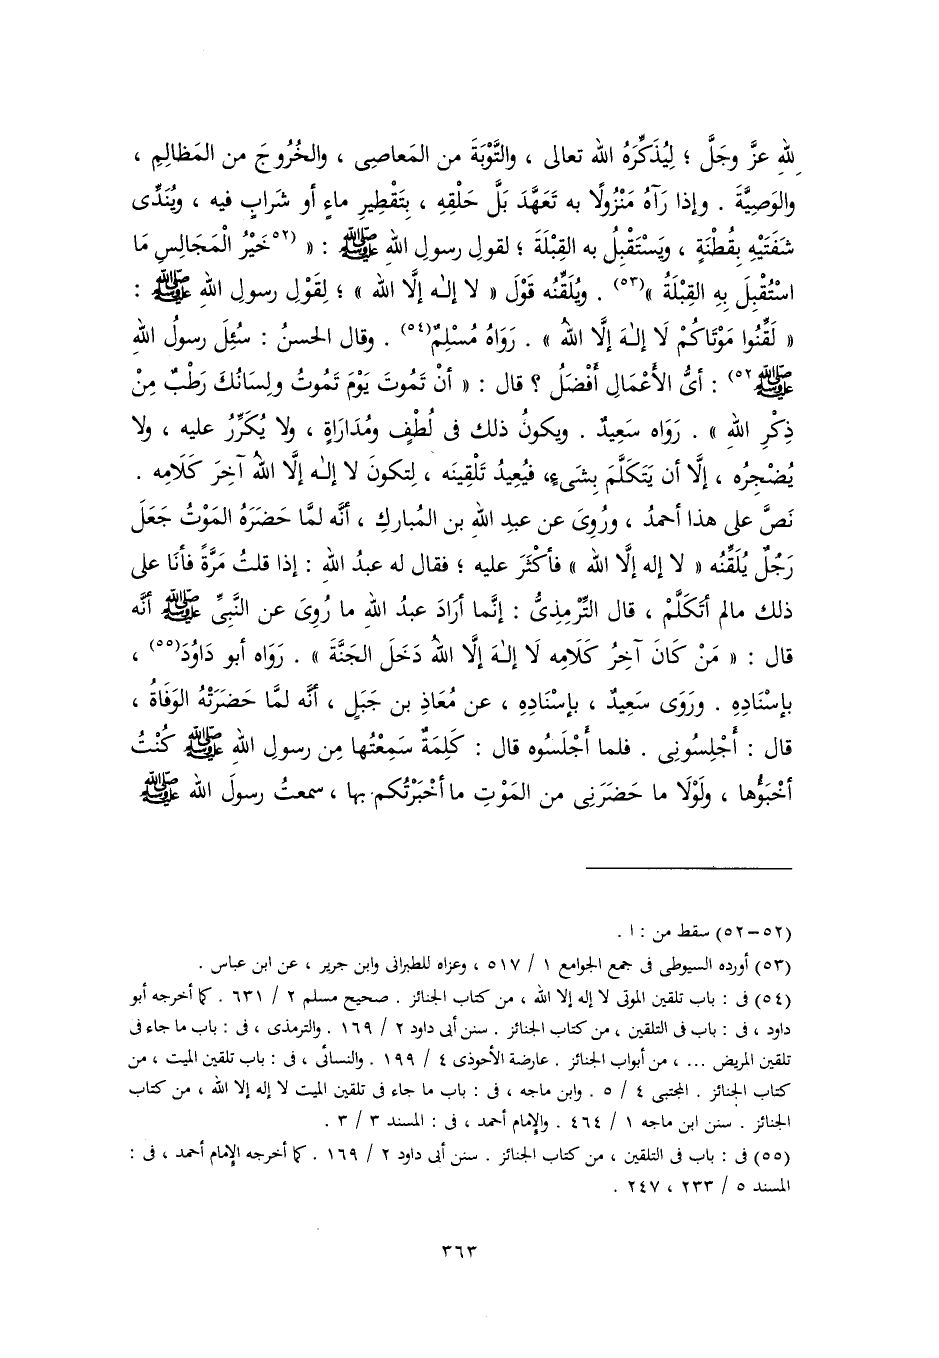 لله عزَّ وجَلَّ ؛ لِيُذَكِّرَهُ الله تعالى ، والتَّوْبَةَ من المَعاصِى ، والخُرُوجَ من المَظالِمِ ،
والوَصِيَّةَ . وإذا رَآهُ مَنْزُولًا به تَعَهَّدَ بَلَّ حَلْقِهِ ، بِتَقْطِيرِ ماءٍ أو شَرابٍ فيه ، ويُنَدِّى
شَفَتَيْهِ بِقُطْنَةٍ ، ويَسْتَقْبِلُ به القِبْلَةَ ؛ لقولِ رسولِ الله ﷺ : « (٥٢خَيْرُ الْمَجَالِسِ مَا
اسْتُقْبِلَ بِهِ القِبْلَةُ »(٥٣) . ويُلَقِّنُه قَوْلَ « لا إلـٰه إلَّا الله » ؛ لِقَوْلِ رسولِ الله ﷺ :
« لَقِّنُوا مَوْتَاكُمْ لَا إلـٰهَ إلَّا اللهُ » . رَوَاهُ مُسْلِمٌ(٥٤) . وقال الحسنُ : سُئِلَ رسولُ اللهِ
ﷺ٥٢) : أىُّ الأَعْمَالِ أَفْضَلُ ؟ قال : « أنْ تَمُوتَ يَوْمَ تَمُوتُ ولِسَانُكَ رَطْبٌ مِنْ
ذِكْرِ اللهِ » . رَوَاه سَعِيدٌ . ويكونُ ذلك فى لُطْفٍ ومُدَارَاةٍ ، ولا يُكَرِّرُ عليه ، ولا
يُضْجِرُه ، إلَّا أن يَتَكَلَّمَ بِشَىءٍ، فيُعِيدُ تَلْقِينَه ، لِتكونَ لا إلـٰه إلَّا اللهُ آخِرَ كَلَامِه .
نَصَّ على هذا أحمدُ ، ورُوِىَ عن عبدِ اللهِ بن المُباركِ ، أنَّه لمَّا حَضَرَهُ المَوْتُ جَعَلَ
رَجُلٌ يُلَقِّنُه « لا إله إلَّا الله » فأكْثَرَ عليه ؛ فقال له عبدُ الله : إذا قلتُ مَرَّةً فأنَا على
ذلك مالم أتَكَلَّمْ ، قال التِّرْمِذِىُّ : إنَّما أرَادَ عبدُ الله ما رُوِىَ عن النَّبِىِّ ﷺ أنَّه
قال : « مَنْ كَانَ آخِرُ كَلَامِه لَا إلـٰهَ إلَّا اللهُ دَخَلَ الجَنَّةَ » . رَوَاه أبو دَاوُدَ(٥٥) ،
بإسْنَادِهِ . ورَوَى سَعِيدٌ ، بإسْنَادِهِ ، عن مُعَاذِ بن جَبَلٍ ، أنَّه لمَّا حَضَرَتْهُ الوَفَاةُ ،
قال : أَجْلِسُونِى . فلما أَجْلَسُوه قال : كَلِمَةٌ سَمِعْتُها مِن رسولِ اللهِ ﷺ كُنْتُ
أَخْبَؤُها ، ولَوْلَا ما حَضَرَنِى من المَوْتِ ما أخْبَرْتُكم بها ، سمعتُ رسولَ الله ﷺ
(٥٢-٥٢) سقط من : ا .
(٥٣) أورده السيوطى فى جمع الجوامع ١ / ٥١٧ ، وعزاه للطبرانى وابن جرير ، عن ابن عباس .
(٥٤) فى : باب تلقين الموتى لا إله إلا الله ، من كتاب الجنائز . صحيح مسلم ٢ / ٦٣١ . كما أخرجه أبو
داود ، فى : باب فى التلقين ، من كتاب الجنائز . سنن أبى داود ٢ / ١٦٩ . والترمذى ، فى : باب ما جاء فى
تلقين المريض ... ، من أبواب الجنائز . عارضة الأحوذى ٤ / ١٩٩ . والنسائى ، فى : باب تلقين الميت ، من
كتاب الجنائز . المجتبى ٤ / ٥ . وابن ماجه ، فى : باب ما جاء فى تلقين الميت لا إله إلا الله ، من كتاب
الجنائز . سنن ابن ماجه ١ / ٤٦٤ . والإمام أحمد ، فى : المسند ٣ / ٣ .
(٥٥) فى : باب فى التلقين ، من كتاب الجنائز . سنن أبى داود ٢ / ١٦٩ . كما أخرجه الإمام أحمد ، فى :
المسند ٥ / ٢٣٣ ، ٢٤٧ .
٣٦٣